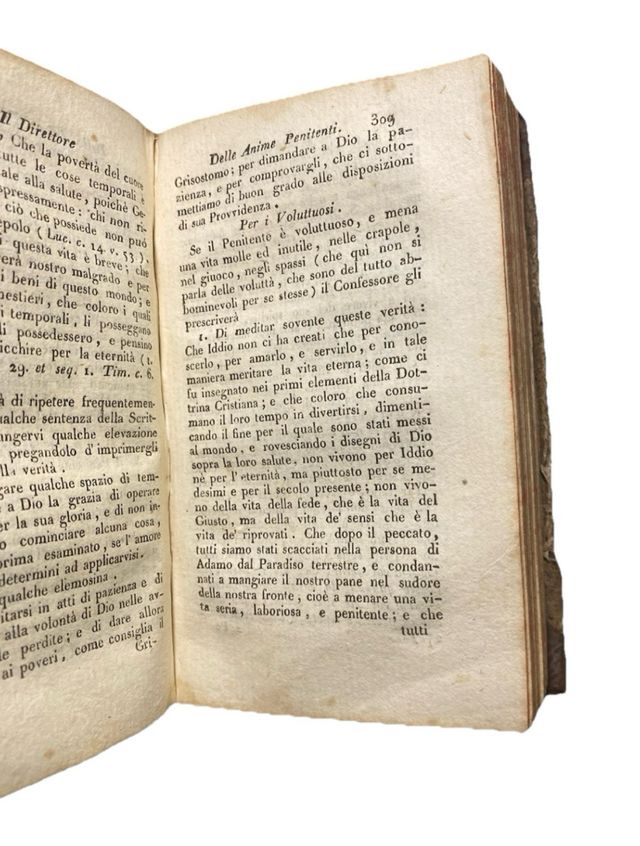 Il Direttore
Che la povertà del cuore
tutte le cose temporali è
ale alla salute, poichè Ge-
spressamente: chi non ri-
ciò che possiede non può
epolo (Luc. c. 14 v. 53).
questa vita è breve; che
erà nostro malgrado e per
i beni di questo mondo; e
mestieri, che coloro i quali
i temporali, li posseggano
li possedessero, e pensino
icchire per la eternità (1.
29. et seq. 1. Tim. c. 6.
à di ripetere frequentemen-
ualche sentenza della Scrit-
ungervi qualche elevazione
pregandolo d'imprimergli
verità.
gare qualche spazio di tem-
a Dio la grazia di operare
er la sua gloria, e di non in-
o cominciare alcuna cosa,
prima esaminato, se l'amore
determini ad applicarvisi.
qualche elemosina.
itarsi in atti di pazienza e di
alla volontà di Dio nelle av-
le perdite; e di dare allora
ai poveri, come consiglia il
Gri-
Delle Anime Penitenti. 309
Grisostomo; per dimandare a Dio la pa-
zienza, e per comprovargli, che ci sotto-
mettiamo di buon grado alle disposizioni
di sua Provvidenza.
Per i Voluttuosi.
Se il Penitente è voluttuoso, e mena
una vita molle ed inutile, nelle crapole,
nel giuoco, negli spassi (che quì non si
parla delle voluttà, che sono del tutto ab-
bominevoli per se stesse) il Confessore gli
prescriverà
1. Di meditar sovente queste verità:
Che Iddio non ci ha creati che per cono-
scerlo, per amarlo, e servirlo, e in tale
maniera meritare la vita eterna; come ci
fu insegnato nei primi elementi della Dot-
trina Cristiana; e che coloro che consu-
mano il loro tempo in divertirsi, dimenti-
cando il fine per il quale sono stati messi
al mondo, e rovesciando i disegni di Dio
sopra la loro salute, non vivono per Iddio
nè per l'eternità, ma piuttosto per se me-
desimi e per il secolo presente; non vivo-
no della vita della fede, che è la vita del
Giusto, ma della vita de' sensi che è la
vita de' riprovati. Che dopo il peccato,
tutti siamo stati scacciati nella persona di
Adamo dal Paradiso terrestre, e condan-
nati a mangiare il nostro pane nel sudore
della nostra fronte, cioè a menare una vi-
ta seria, laboriosa, e penitente; e che
tutti